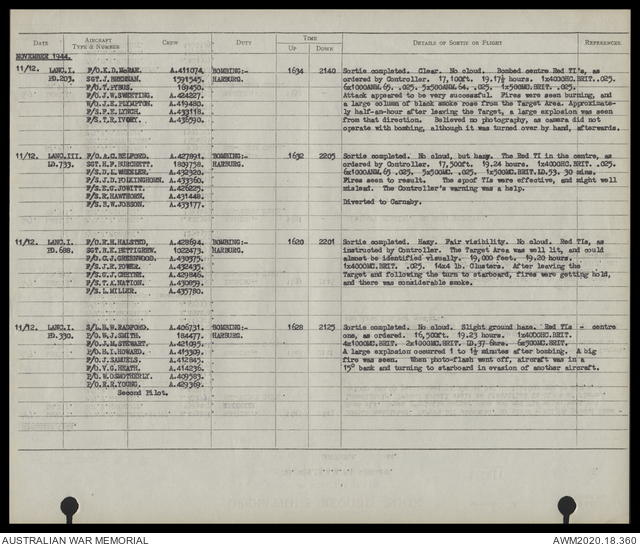 DATE AIRCRAFT TYPE & NUMBER CREW DUTY TIME UP DOWN DETAILS OF SORTIE OR FLIGHT REFERENCES
NOVEMBER 1944.
11/12. LANC.I. F/O.K.D.McRAE. A.411074. BOMBING:- 1634 2140 Sortie completed. Clear. No cloud. Bombed centre Red TI's, as
PD.203. SGT.J.NEEDHAM. 1591545. HARBURG. ordered by Controller. 17,100ft. 19.17½ hours. 1x4000HC.BRIT. .025.
F/O.T.PYBUS. 169450. 6x1000ANM.65. .025. 5x500ANM.64. .025. 1x500MC.BRIT. .025.
F/O.J.W.SWEETING. A.424227. Attack appeared to be very successful. Fires were seen burning, and
W/O.J.E.PLYMPTON. A.419480. a large column of black smoke rose from the Target Area. Approximate-
F/S.F.E.LYNCH. A.433118. ly half-an-hour after leaving the Target, a large explosion was seen
F/S.T.R.IVORY. A.436590. from that direction. Believed no photography, as camera did not
operate with bombing, although it was turned over by hand, afterwards.
11/12. LANC.III. F/O.A.C.BELFORD. A.427891. BOMBING:- 1632 2205 Sortie completed. No cloud, but hazy. The Red TI in the centre, as
LD.733. SGT.H.P.BURCHETT. 1809758. HARBURG. ordered by Controller. 17,500ft. 19.24 hours. 1x4000HC.BRIT. .025.
F/S.D.L.WHEELER. A.432320. 6x1000ANM.65 .025. 5x500MC. .025. 1x500MC.BRIT.LD.53. 30 mins.
F/S.J.D.POLKINGHORN. A.433360. Fires seen to result. The spoof TIs were effective, and might well
F/S.E.G.JOWITT. A.426225. mislead. The Controller's warning was a help.
F/S.R.HAWTHORN. A.431448.
F/S.S.W.JOBSON. A.433177. Diverted to Carnaby.
11/12. LANC.I. F/O.R.H.HALSTED. A.428694. BOMBING:- 1620 2201 Sortie completed. Hazy. Fair visibility. No cloud. Red TIs, as
PD.688. SGT.R.E.PETTIGREW. 1022473. HARBURG. instructed by Controller. The Target Area was well lit, and could
F/O.C.J.GREENWOOD. A.430375. almost be identified visually. 19,000 feet. 19.20 hours.
F/S.J.R.POWER. A.432435. 1x4000MC.BRIT. .025. 14x4 lb. Clusters. After leaving the
F/S.G.J.CHEYNE. A.429846. Target and following the turn to starboard, fires were getting hold,
F/S.T.A.NATION. A.430859. and there was considerable smoke.
F/S.L.MILLER. A.435780.
11/12. LANC.I. S/L.H.W.RADFORD. A.406731. BOMBING:- 1628 2125 Sortie completed. No cloud. Slight ground haze. Red TIs - centre
PD.330. F/O.W.J.SMITH. 184477. HARBURG. one, as ordered. 16,500ft. 19.23 hours. 1x4000HC.BRIT.
F/O.J.M.STEWART. A.421095. 4x1000MC.BRIT. 2x1000MC.BRIT. LD.37 6hrs. 6x500MC.BRIT.
F/O.H.I.HOWARD. A.413309. A large explosion occurred 1 to 1½ minutes after bombing. A big
F/O.J.SAMUELS. A.412845. fire was seen. When photo-flash went off, aircraft was in a
F/O.V.G.HEATH. A.414236. 15° bank and turning to starboard in evasion of another aircraft.
F/O.W.OSMOTHERLY. A.409583.
F/O.R.R.YOUNG. A.429369.
Second Pilot.
AUSTRALIAN WAR MEMORIAL AWM2020.18.360